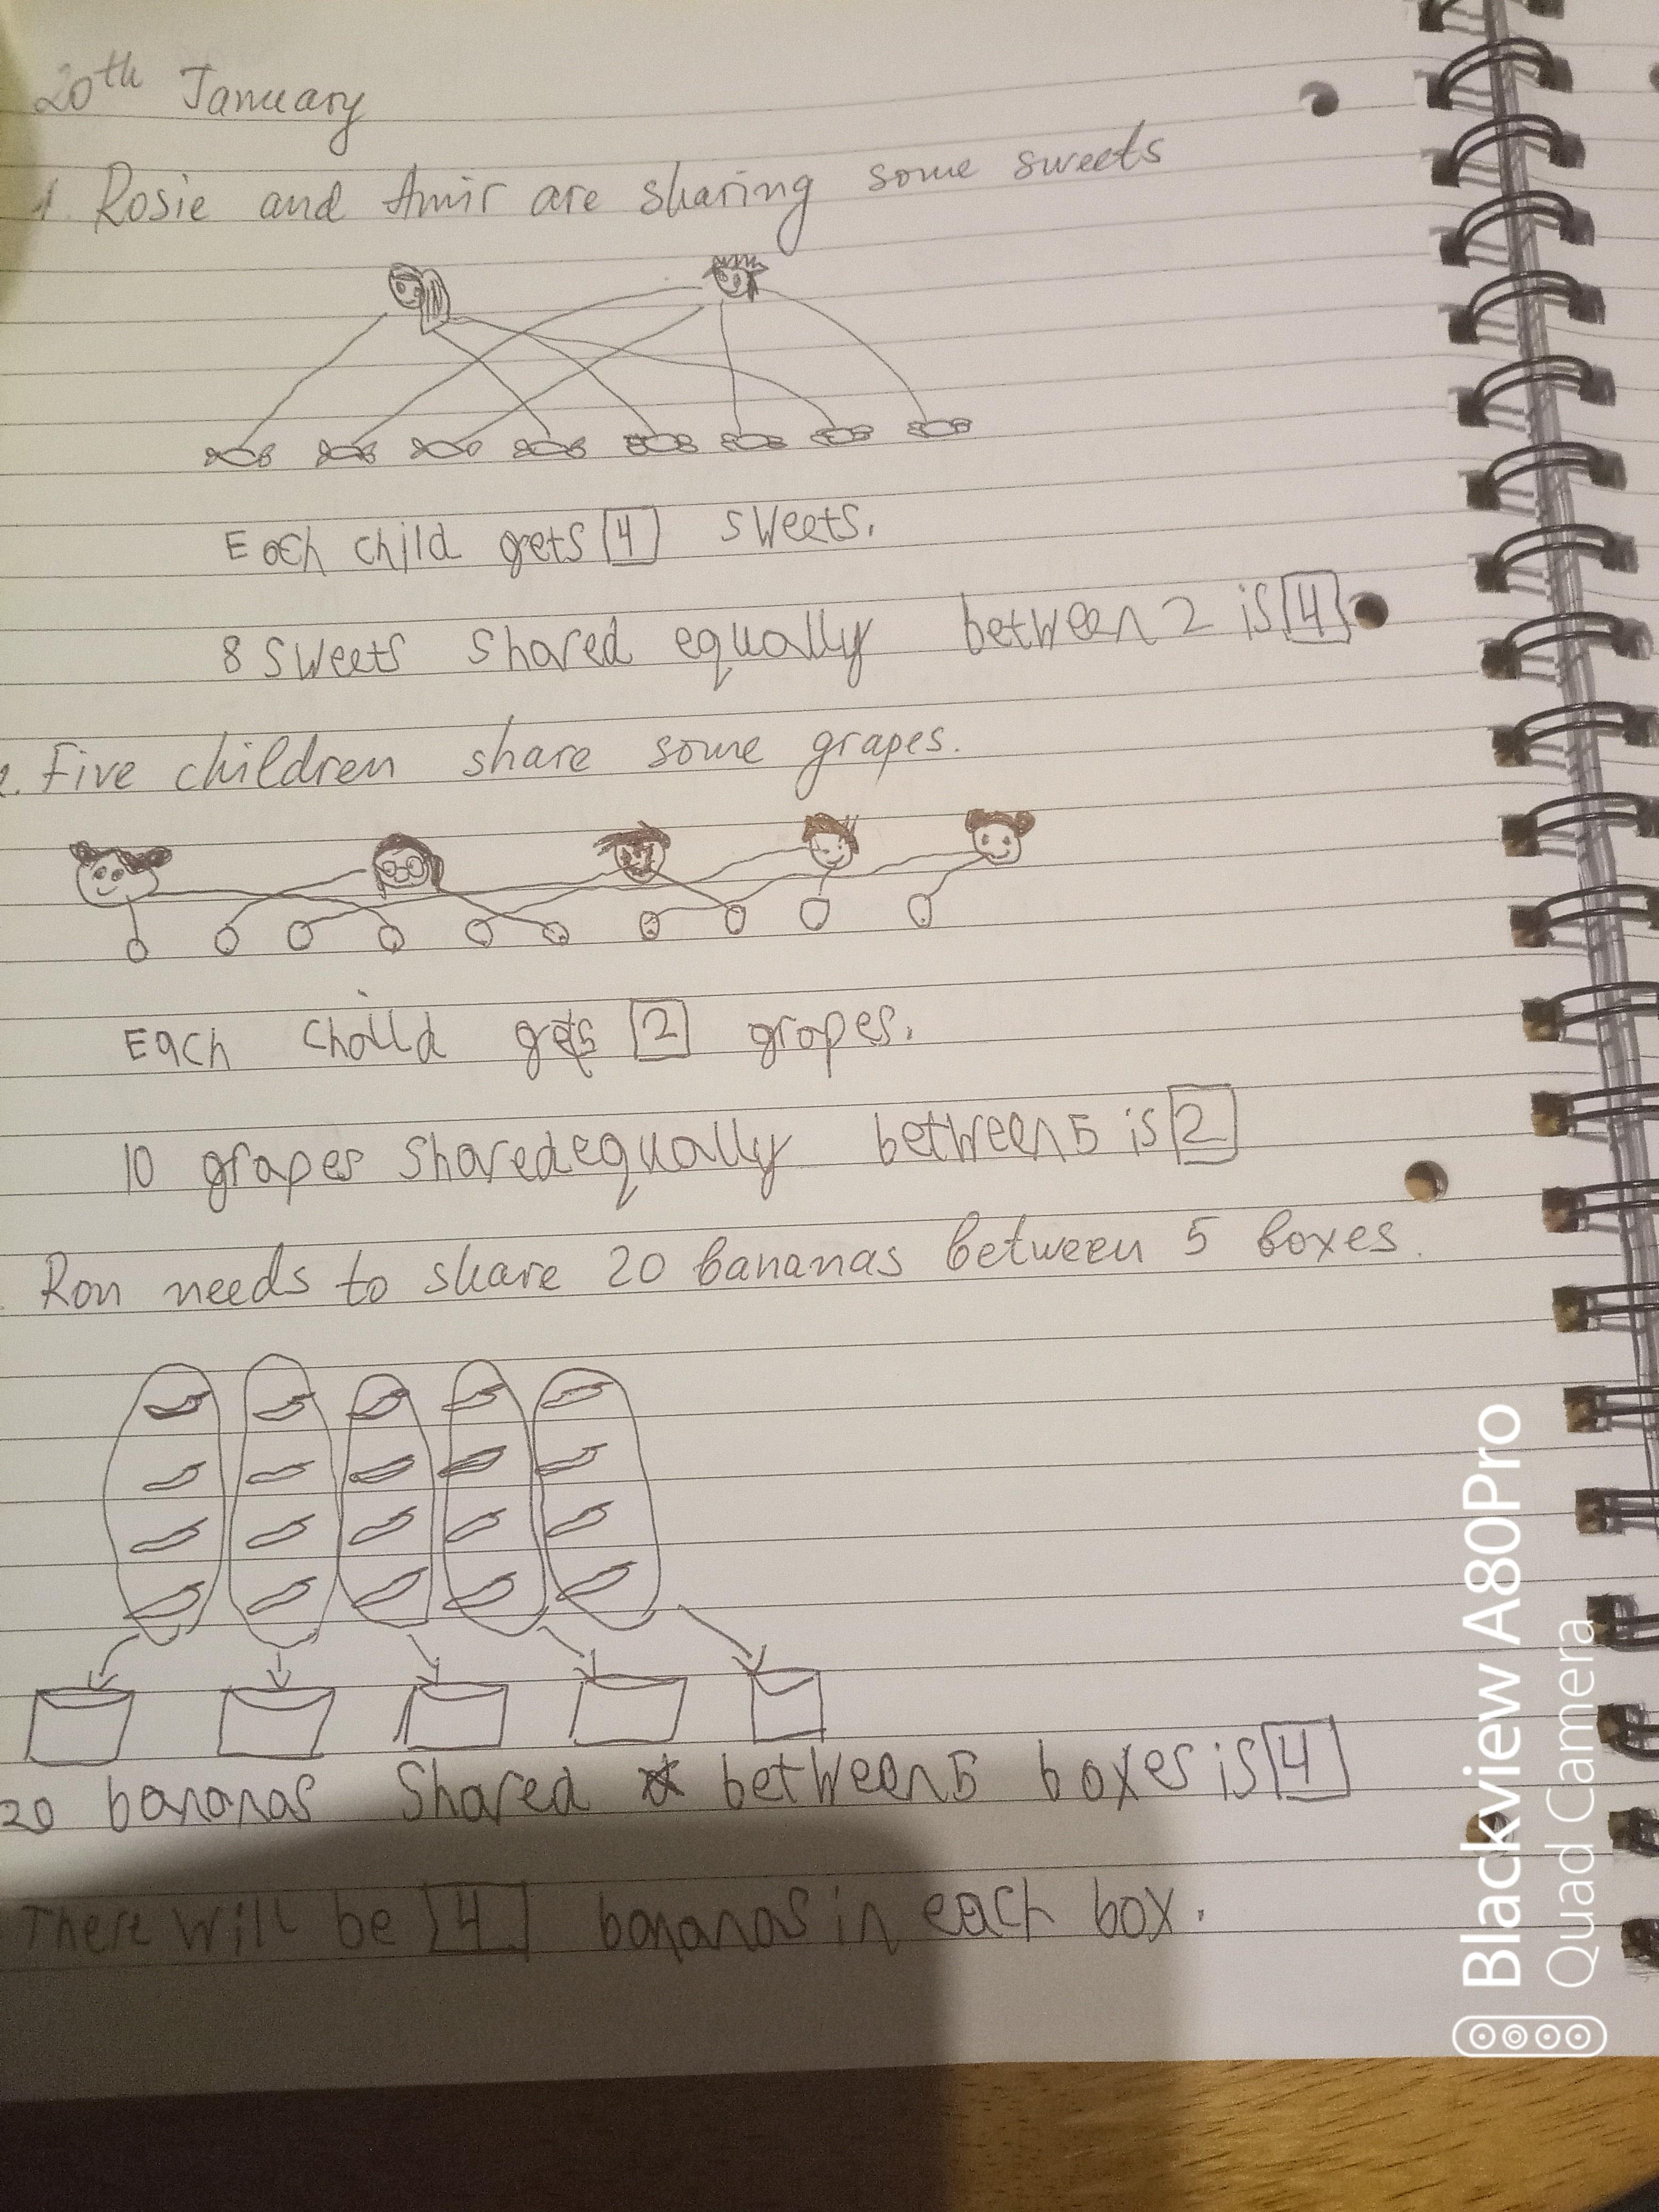 20th January
1. Rosie and Amir are sharing some sweets
Each child gets 4 sweets.
8 sweets shared equally between 2 is 4
2. Five children share some grapes.
Each choild gets 2 grapes.
10 grapes sharedequally between 5 is 2
. Ron needs to share 20 bananas between 5 boxes.
20 bananas shared between 5 boxes is 4
There will be 4 bananas in each box.
Blackview A80Pro
Quad Camera